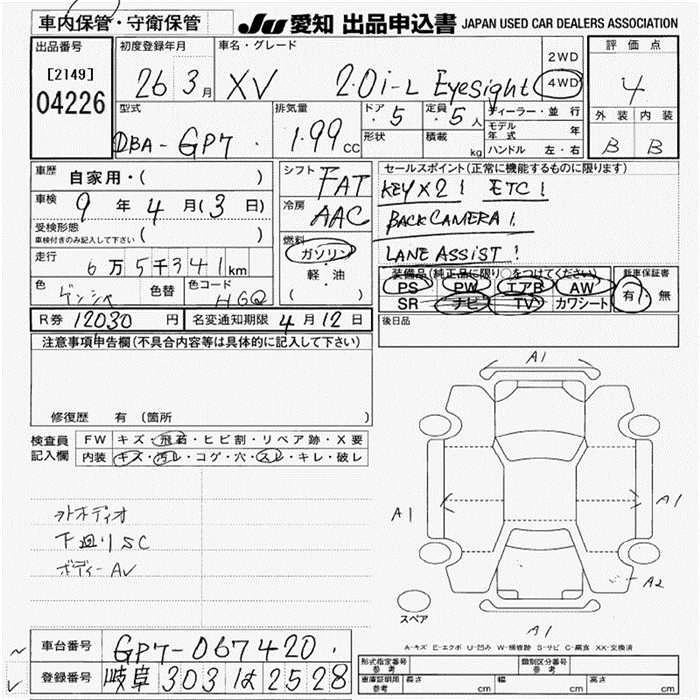 車内保管・守衛保管
JU 愛知 出品申込書 JAPAN USED CAR DEALERS ASSOCIATION
出品番号
[2149]
04226
初度登録年月
26 3月
車名・グレード
XV 2.0i-L EyeSight
2WD
4WD
評価点
4
外装 内装
B B
型式
DBA-GP7
排気量
1.99 cc
ドア
5
形状
定員
5人
積載
kg
ディーラー・並行
モデル年式 年
ハンドル 左・右
車歴
自家用・( )
車検
9年4月(3日)
受検形態
車検付きのみ記入して下さい ( )
走行
6万5千341km
色
色替
色コード
HGQ
シフト
FAT
冷房
AAC
燃料
ガソリン
・
軽・油
( )
セールスポイント(正常に機能するものに限ります)
KEY×2! ETC!
BACK CAMERA!
LANE ASSIST!
装備品(純正品に限り○をつけてください)
PS PW エアB AW
SR ナビ TV カワシート
新車保証書
有・無
R券 12030 円
名変通知期限 4月12日
後日品
注意事項申告欄(不具合内容等は具体的に記入して下さい)
修復歴 有 (箇所
検査員
記入欄
FW キズ・飛石・ヒビ割・リペア跡・X要
内装 キズ・汚レ・コゲ・穴・スレ・キレ・破レ
オーディオ
下廻りSC
ボディーAV
A1
A1
A1
A2
A1
スペア
A-キズ E-エクボ U-凹み W-補修跡 S-サビ C-腐食 XX-交換済
車台番号 GP7-067420
登録番号 岐阜 303 は 2528
形式指定番号
参考
類別区分番号
参考
車庫証明用
参考
長さ cm 幅 cm 高さ cm